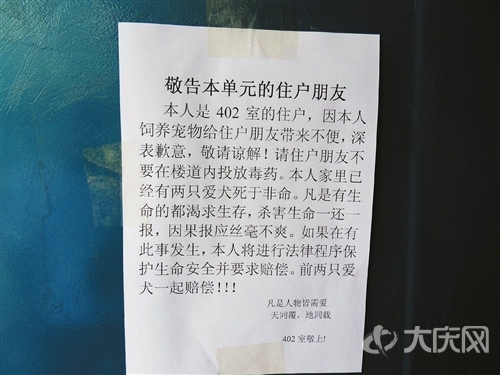 敬告本单元的住户朋友
本人是 402 室的住户，因本人
饲养宠物给住户朋友带来不便，深
表歉意，敬请谅解！请住户朋友不
要在楼道内投放毒药。本人家里已
经有两只爱犬死于非命。凡是有生
命的都渴求生存，杀害生命一还一
报，因果报应丝毫不爽。如果在有
此事发生，本人将进行法律程序保
护生命安全并要求赔偿。前两只爱
犬一起赔偿！！！
凡是人物皆需爱
天同覆，地同载
402 室敬上!
大庆网